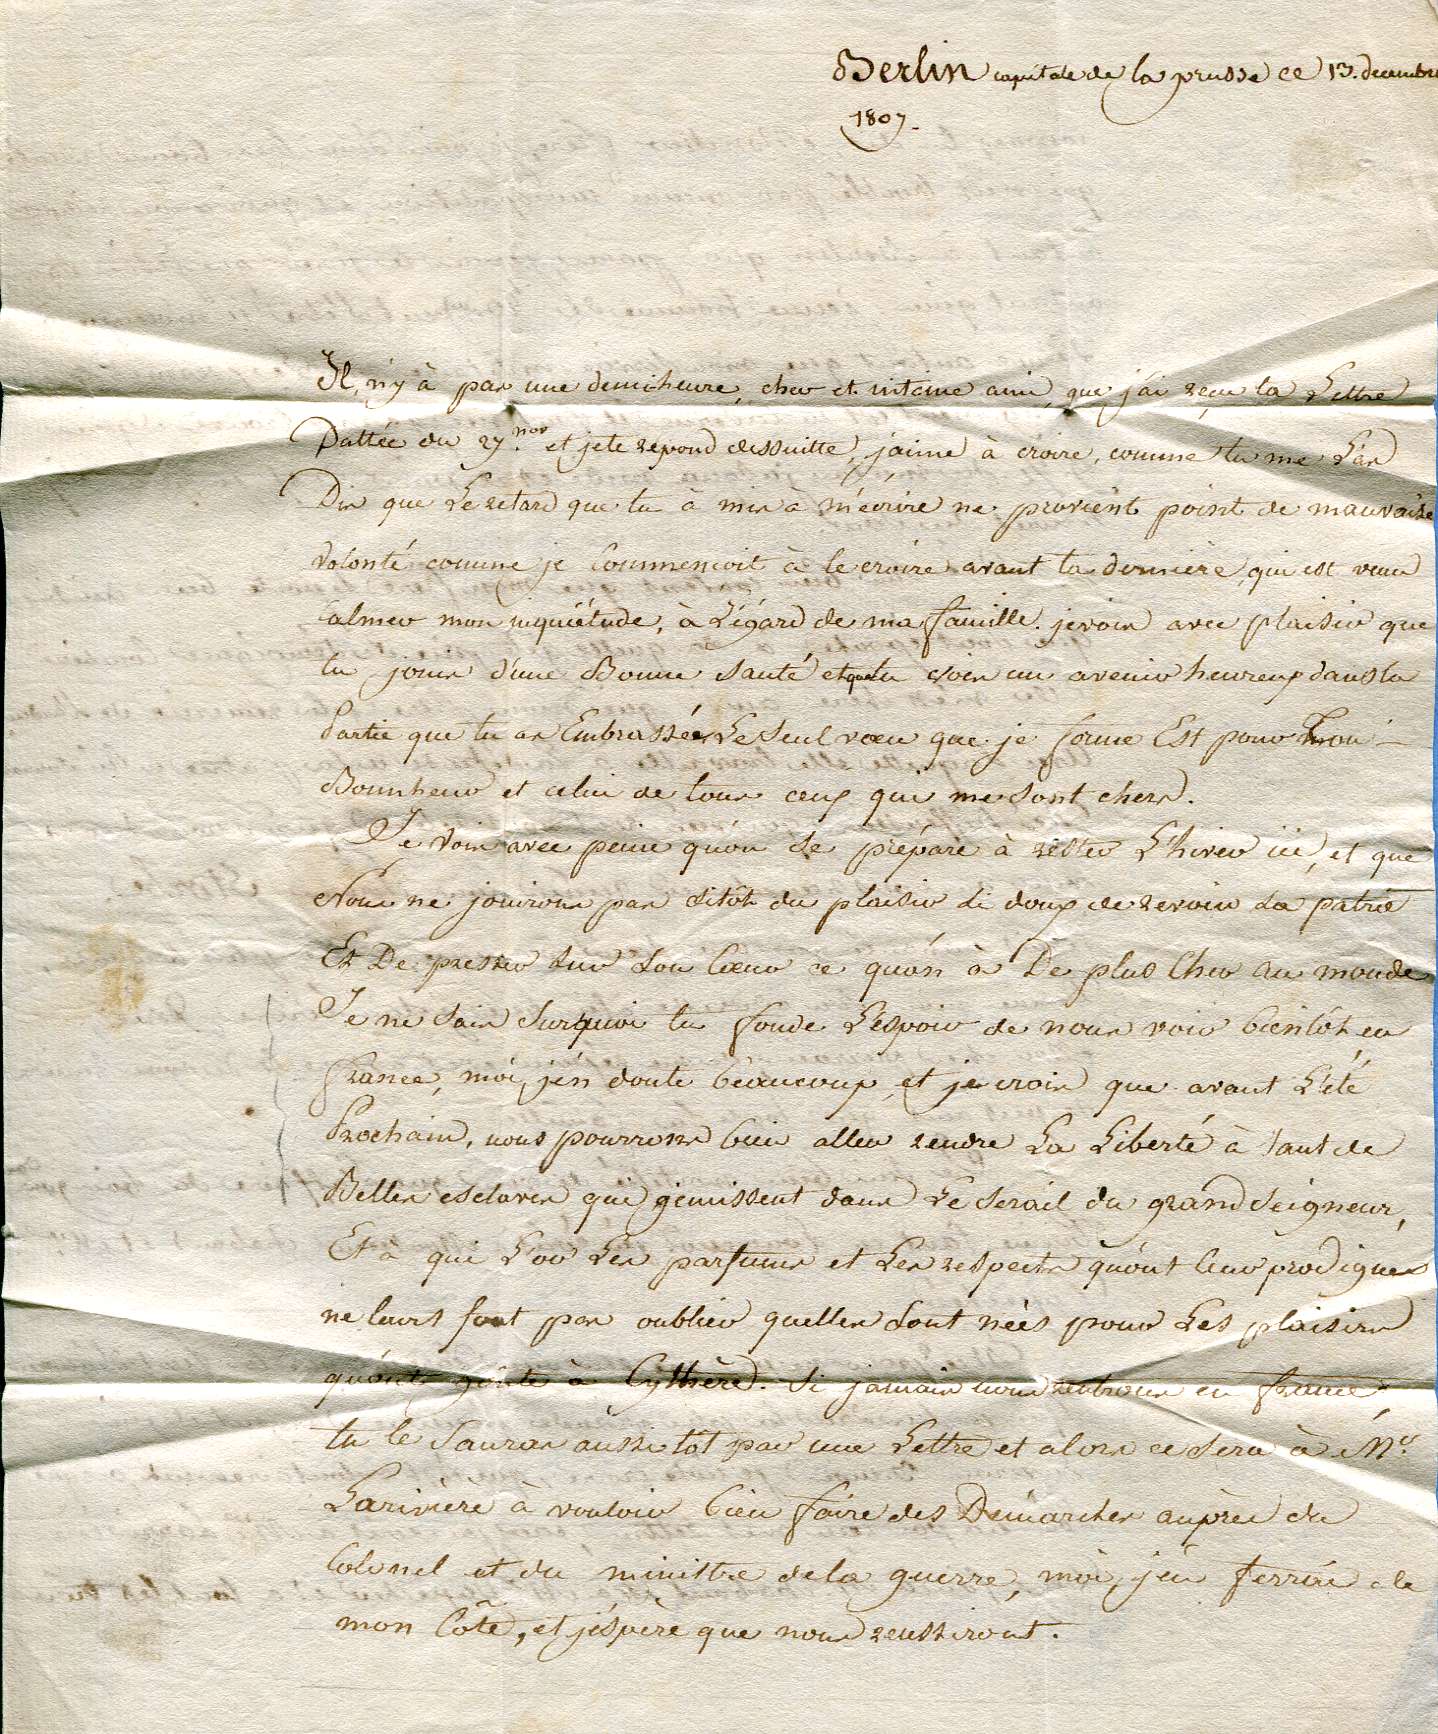 Berlin capitale de la prusse ce 13. decembre
1807.
Il n'y à pas une demi-heure, cher et intime ami, que j'ai reçu ta Lettre
Dattée du 27. nov et je te repond dessuitte, j'aime à croire, comme tu me L'as
Dis que Le retard que tu à mis a m'écrire ne provient point de mauvaise
volonté comme je Commencoit à le croire avant ta derniere, qui est venu
Calmer mon inquiétude, à L'égard de ma famille. je vois avec plaisir que
tu jouis d'une Bonne santé et que tu vois un avenir heureux dans la
Partie que tu as Embrassée Le seul vœu que je forme Est pour ton
Bonnheur et celui de tous ceux qui me sont chers.
Je vois avec peine qu'on se prépare à rester L'hiver ici, et que
Nous ne jouirons pas sitôt du plaisir si doux de revoir sa patrie
Et De presser sur son Cœur ce qu'on à De plus Cher au monde
Je ne sais sur quoi tu fonde L'espoir de nous voir bientôt en
france, moi, j'en doute beaucoup, et je crois que avant L'été
Prochain, nous pourrons bien aller rendre La Liberté à tant de
Belles esclaves que gemissent dans Le serail du grand seigneur,
Et à qui L'or Les parfums et Les respects qu'ont leur prodigues
ne leurs font pas oublier quelles sont nées pour Les plaisirs
qu'ont goûte à Cythère. Si jamais nous rentrons en france,
tu le sauras aussi tôt par une Lettre et alors ce sera à Mr.
Larivière à vouloir bien faire des Démarches auprès du
Colonel et du ministre de la guerre, moi, j'en ferrai de
mon Côté, et j'éspère que nous reussiront.